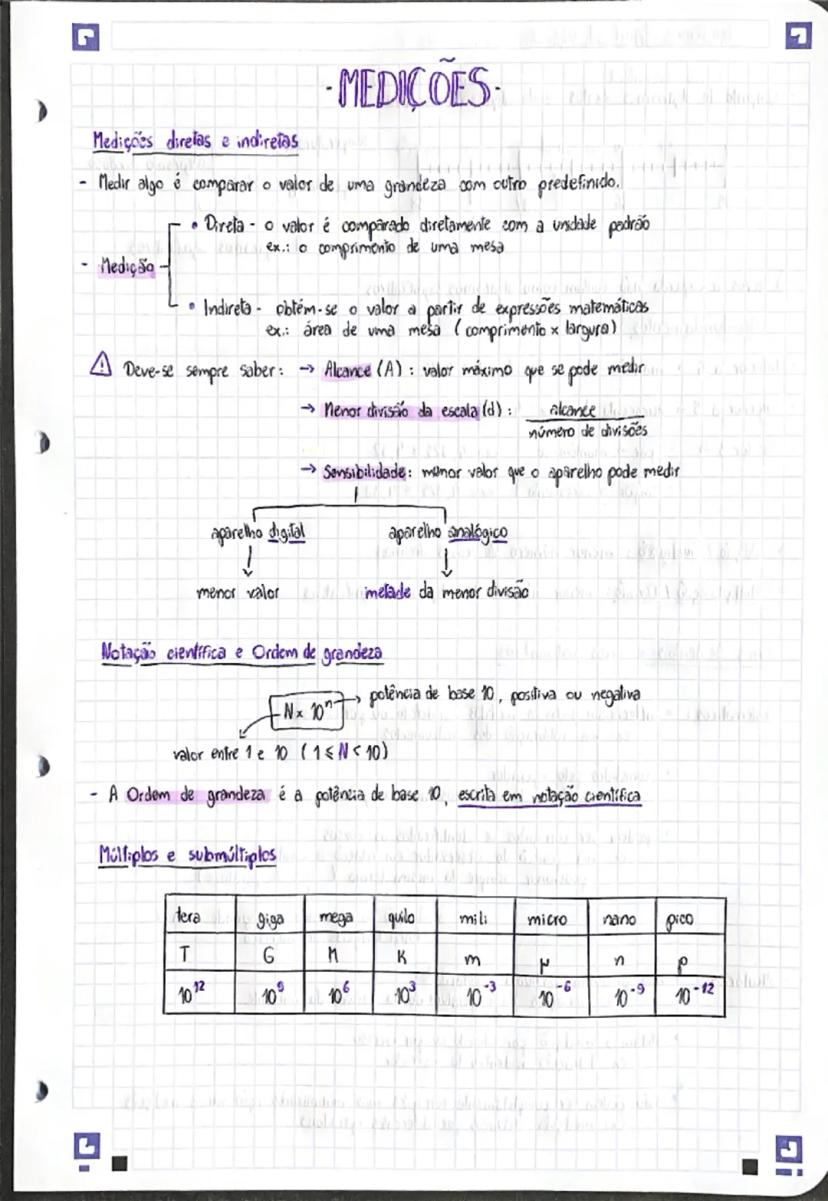 -MEDIÇÕES-
Medições diretas e indiretas
- Medir algo é comparar o valor de uma grandeza com outro predefinido.
- Medição
• Direta - o valor é comparado diretamente com a unidade padrão
ex.: o comprimento de uma mesa
• Indireta - obtém-se o valor a partir de expressões matemáticas
ex.: área de uma mesa (comprimento x largura)
⚠ Deve-se sempre saber: → Alcance (A) : valor máximo que se pode medir
→ Menor divisão da escala (d) : alcance
número de divisões
→ Sensibilidade: menor valor que o aparelho pode medir
aparelho digital aparelho analógico
↓ ↓
menor valor metade da menor divisão
Notação científica e Ordem de grandeza
N x 10ⁿ → potência de base 10, positiva ou negativa
valor entre 1 e 10 (1 ≤ N < 10)
- A Ordem de grandeza é a potência de base 10, escrita em notação científica
Múltiplos e submúltiplos
tera giga mega quilo mili micro nano pico
T G M K m μ n p
10¹² 10⁹ 10⁶ 10³ 10⁻³ 10⁻⁶ 10⁻⁹ 10⁻¹²